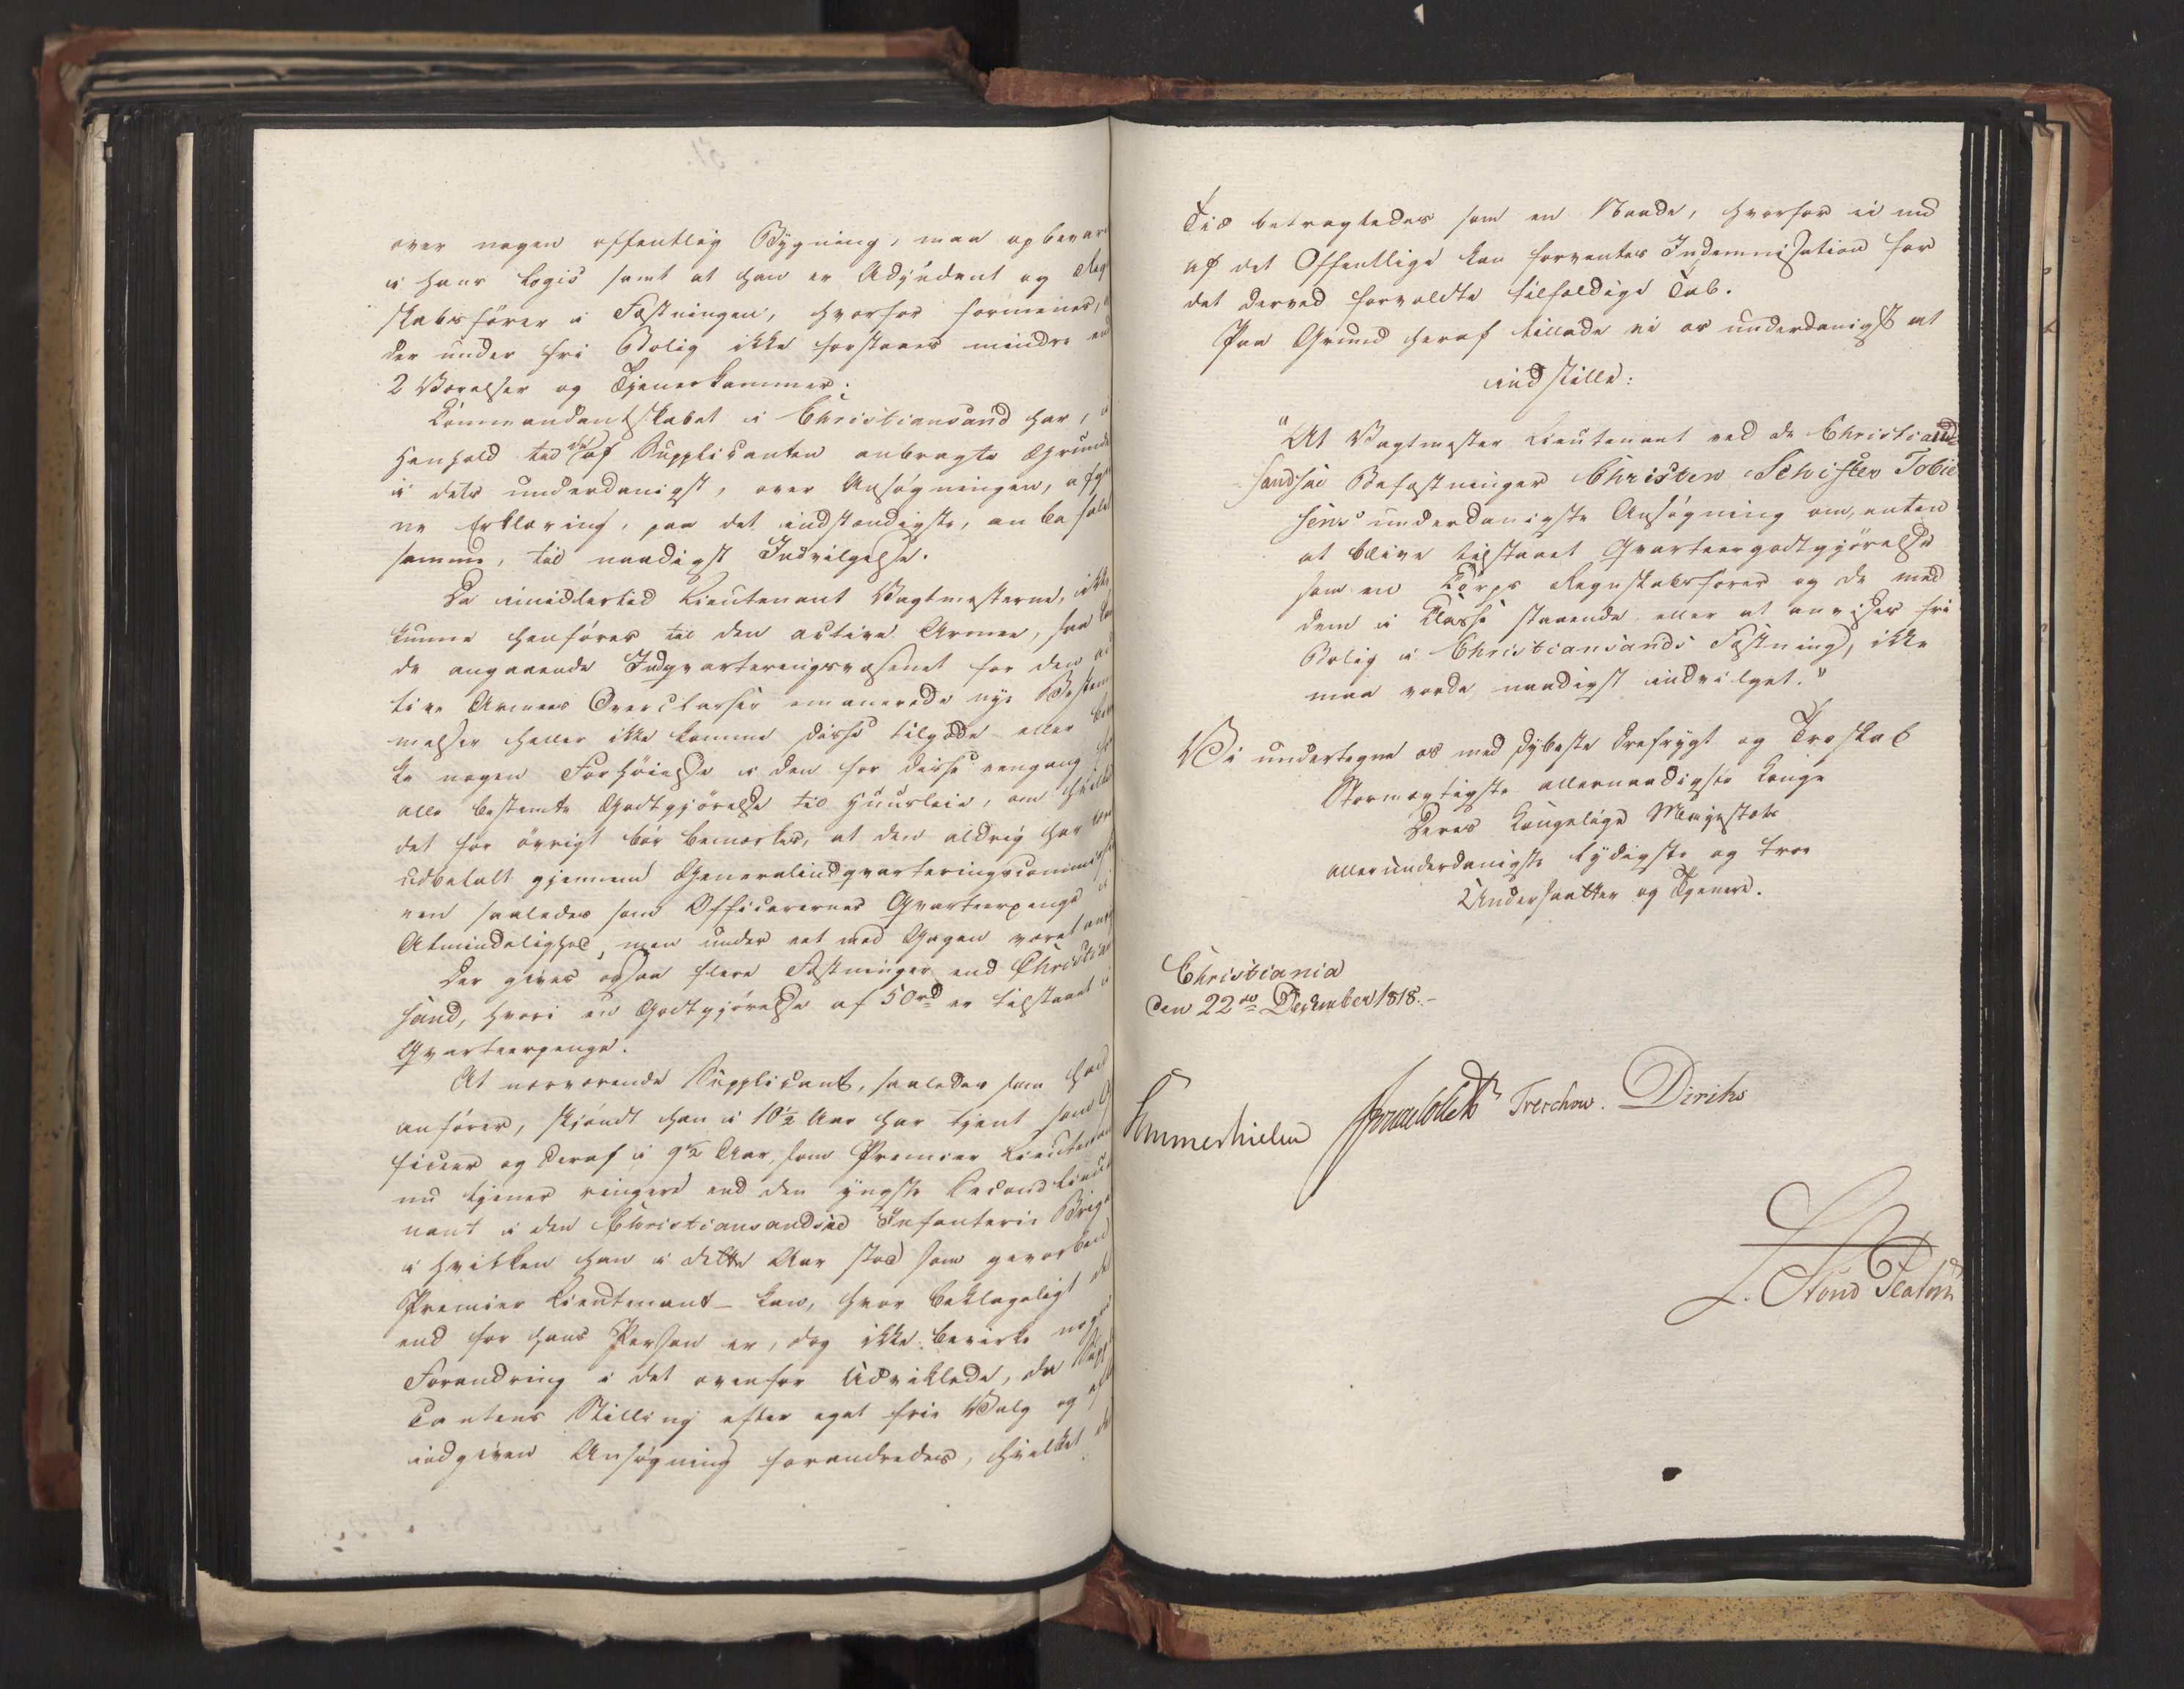 over nogen offentlig Bygning, maa opbevar
i hans Logis samt at han er Adjudant og Reg
skabsfører i Fæstningen, hvorfor formenes,
der under fri Bolig ikke forstaaes mindre end
2 Værelser og Tjenerkammer.
Commandantskabet i Christiansand har, i
Henhold til de af Supplicanten anbragte Grunde
i dets underdanigst, over Ansøgningen, afgiv
ne Erklæring, paa det indstændigste, anbefalet
samme, til naadigst Indvilgelse.
Da imidlertid Lieutenant Vagtmesterne, ikke
kunne henføres til den active Armee, saa kan
de angaaende Indqvarteringsvæsenet for den ac
tive Armees Overclasser emanerede nye Bestem
melser heller ikke komme disse tilgode eller bevir
ke nogen Forhøielse i den for disse eengang for
alle bestemte Godtgjørelse til Huusleie, om hvilken
det for øvrigt bør bemærkes, at den aldrig har været
udbetalt gjennem Generalindqvarteringscommissio
nen saaledes som Officerernes Qvarteerpenge i
Almindelighed, men under eet med Gagen været
Der gives ogsaa flere Fæstninger end Christian
sand, hvori en Godtgjørelse af 50rd er tilstaaet i
Qvarteerpenge.
At nærværende Supplicant, saaledes som han
anfører, skjøndt han i 10½ Aar har tjent som Of
ficeer og deraf i 9½ Aar, som Premier Lieutenant
nu tjener ringere end den yngste Second Lieute
nant i den Christiansandske Infanterie Brigade
i hvilken han i dette Aar stod som gevorben
Premier Lieutenant – kan, hvor beklageligt det
end for hans Person er, dog ikke bevirke nogen
Forandring i det ovenfor Udviklede, da Suppli
cantens Stilling efter eget frie Valg og
indgiven Ansøgning forandredes, hvilket da
Tid betragtedes som en Naade, hvorfor ei nu
af det Offentlige kan forventes Indemnisation for
det derved forvoldte tilfældige Tab.
Paa Grund heraf tillade vi os underdanigst at
indstille:
"At Vagtmester Lieutenant ved de Christian
sandske Befæstninger Christen Schifter Tobie
sens underdanigste Ansøgning om, enten
at blive tilstaaet Qvarteergodtgjørelse
som en Corps Regnskabsfører og de med
dem i Classe staaende eller at anvises fri
Bolig i Christiansands Fæstning, ikke
maa vorde naadigst indvilget."
Vi undertegne os med dybeste Ærefrygt og Troskab
Stormægtigste allernaadigste Konge
Deres Kongelige Majestæts
allerunderdanigste lydigste og troe
Undersaatter og Tjenere.
Christiania
den 22de December 1818.–
Hmmerhielm Jonas Collett Treschow. Diriks
L. Stoud Platou